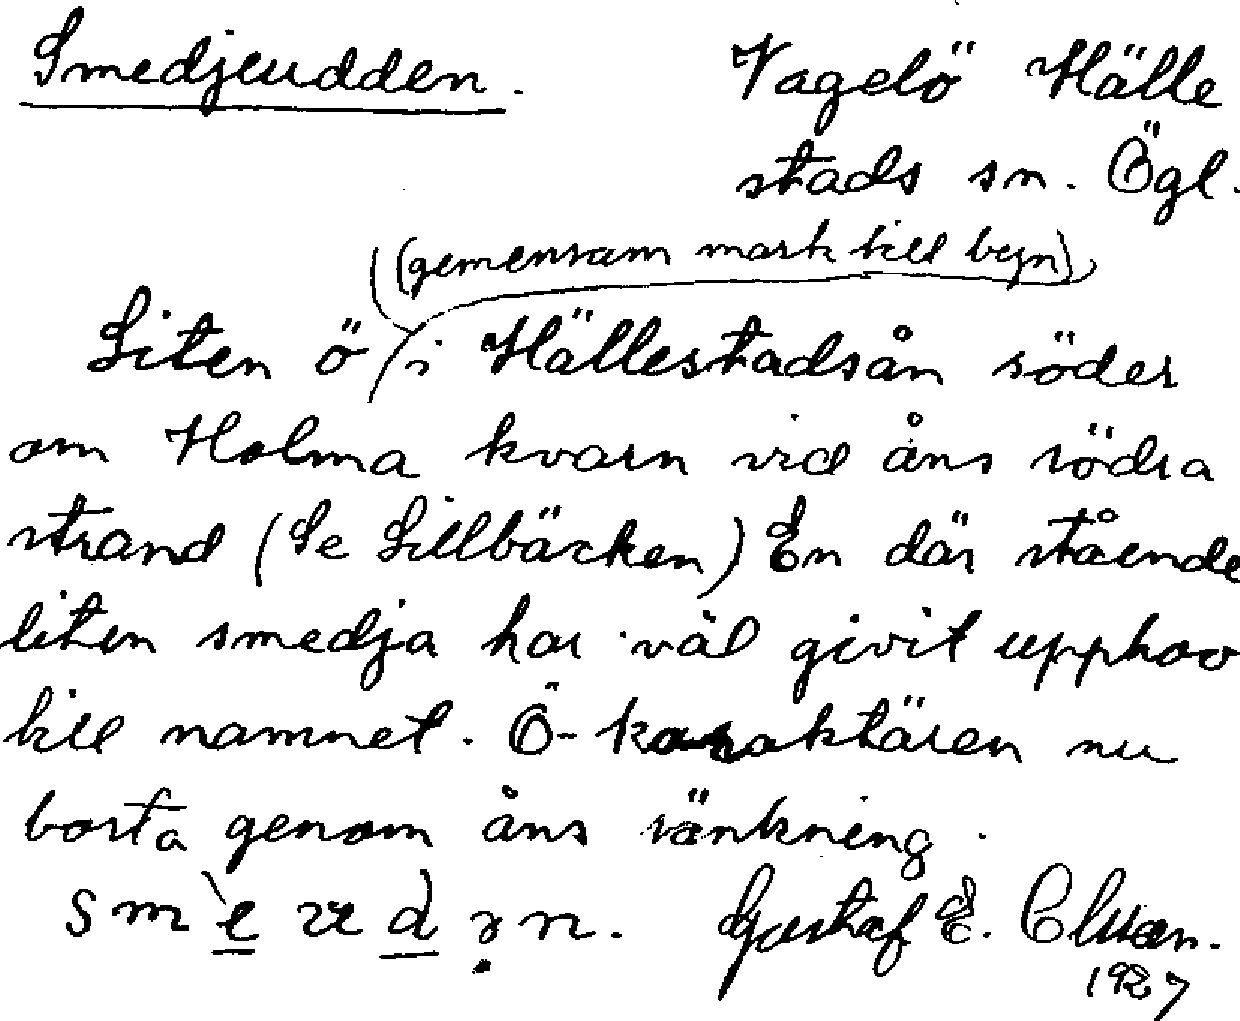 Smedjeudden. Vagelö Hälle
stads sn. Ögl.
(gemensam mark till byn)
Liten ö i Hällestadsån söder
om Holma kvarn vid åns södra
strand (Se Lillbäcken) En där stående
liten smedja har väl givit upphov
till namnet. Ö-karaktären nu
borta genom åns sänkning.
Gustaf E. Olsson.
1927